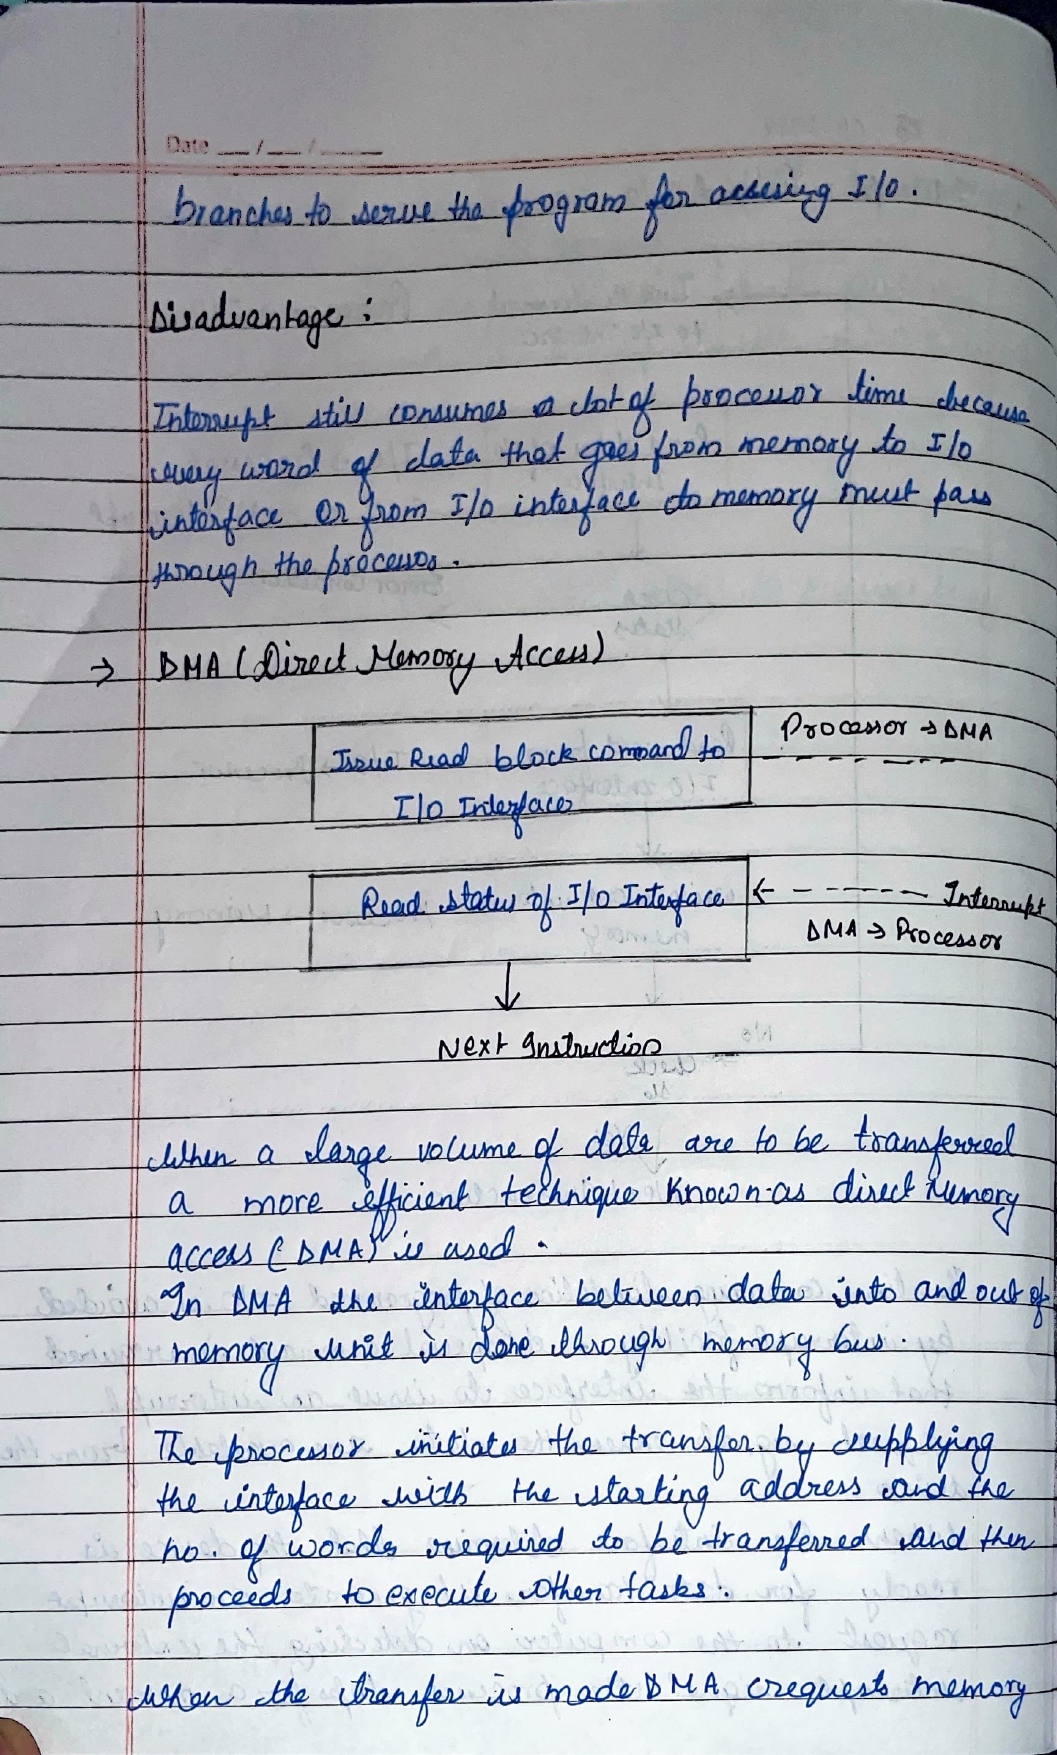 Date __/__/____
branches to serve the program for accesing I/O.
Disadvantage :
Interrupt still consumes a lot of processor time because
every word of data that goes from memory to I/O
interface or from I/O interface to memory must pass
through the processor.
→ DMA (Direct Memory Access)
Issue Read block command to
I/O Interface
Processor → DMA
Read status of I/O Interface
← - - - - - - Interrupt
DMA → Processor
↓
Next Instruction
When a large volume of data are to be transferred
a more efficient technique known as direct memory
access (DMA) is used.
In DMA the interface between data into and out of
memory unit is done through memory bus.
The processor initiates the transfer by supplying
the interface with the starting address and the
no. of words required to be transferred and then
proceeds to execute other tasks.
When the transfer is made DMA requests memory